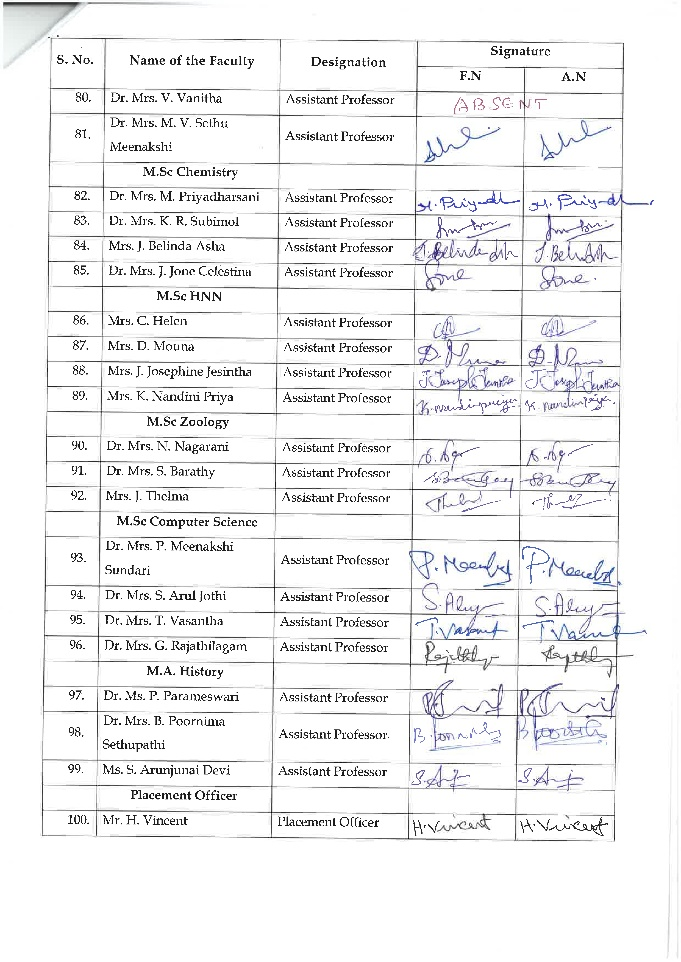 S. No. Name of the Faculty Designation Signature
F.N A.N
80. Dr. Mrs. V. Vanitha Assistant Professor ABSENT
81. Dr. Mrs. M. V. Sethu Assistant Professor
Meenakshi
M.Sc Chemistry
82. Dr. Mrs. M. Priyadharsani Assistant Professor
83. Dr. Mrs. K. R. Subimol Assistant Professor
84. Mrs. J. Belinda Asha Assistant Professor
85. Dr. Mrs. J. Jone Celestina Assistant Professor Jone Jone
M.Sc HNN
86. Mrs. C. Helen Assistant Professor
87. Mrs. D. Mouna Assistant Professor
88. Mrs. J. Josephine Jesintha Assistant Professor
89. Mrs. K. Nandini Priya Assistant Professor K. nandinipriya K. nandinipriya
M.Sc Zoology
90. Dr. Mrs. N. Nagarani Assistant Professor
91. Dr. Mrs. S. Barathy Assistant Professor
92. Mrs. J. Thelma Assistant Professor
M.Sc Computer Science
93. Dr. Mrs. P. Meenakshi Assistant Professor
Sundari
94. Dr. Mrs. S. Arul Jothi Assistant Professor
95. Dr. Mrs. T. Vasantha Assistant Professor
96. Dr. Mrs. G. Rajathilagam Assistant Professor
M.A. History
97. Dr. Ms. P. Parameswari Assistant Professor
98. Dr. Mrs. B. Poornima Assistant Professor
Sethupathi
99. Ms. S. Arunjunai Devi Assistant Professor
Placement Officer
100. Mr. H. Vincent Placement Officer H. Vincent H. Vincent